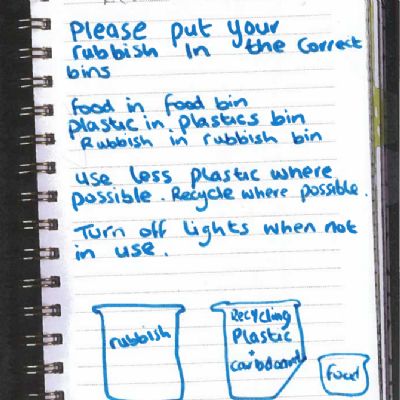 Please put your
rubbish In the correct
bins
food in food bin
plastic in plastics bin
Rubbish in rubbish bin
use less plastic where
possible. Recycle where possible.
Turn off lights when not
in use.
rubbish
Recycling
Plastic
+
cardboard
food